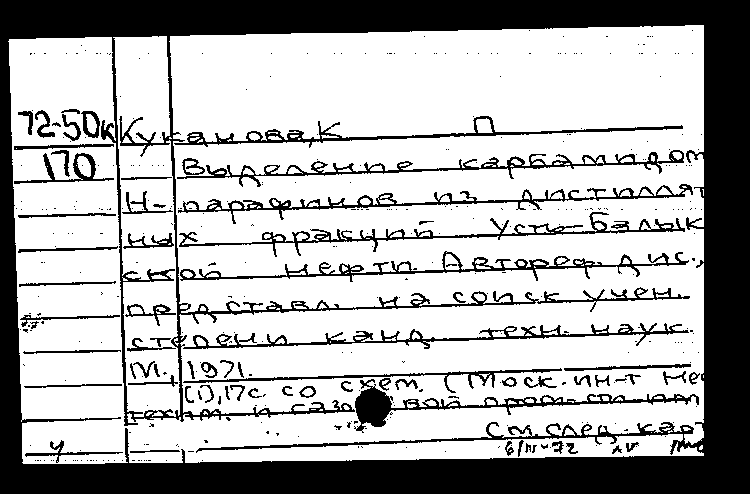 72-50к Куканова, К П
170 Выделение карбамидом
Н-парафинов из дистиллят
ных фракций Усть-Балык
ской нефти. Автореф. дис.,
представл. на соиск учен.
степени канд. техн. наук.
М., 1971.
(1), 17с со схем. (Моск. ин-т не
техим. и газовой пром-сти им
См. след. карт
у 6/IV-72